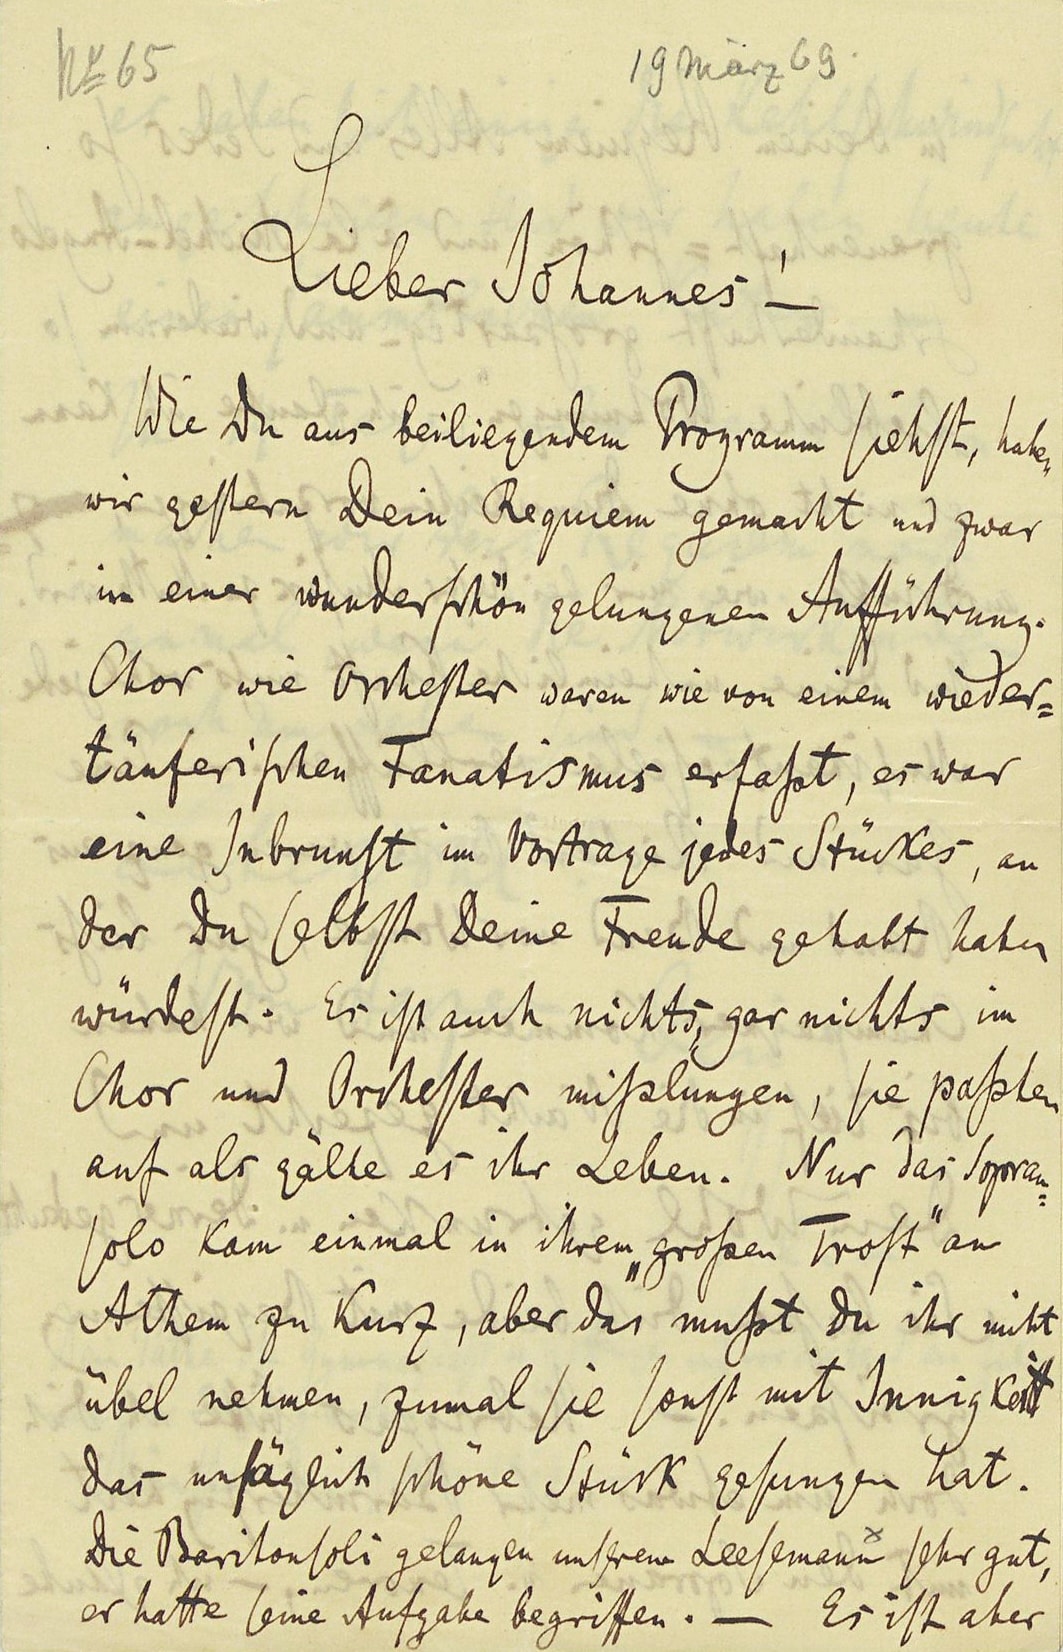 No 65
19 März 69.
Lieber Johannes!
Wie Du aus beiliegendem Programm siehst, haben
wir gestern Dein Requiem gemacht und zwar
in einer wunderschön gelungenen Aufführung.
Chor wie Orchester waren wie von einem wieder=
täuferischen Fanatismus erfaßt, es war
eine Inbrunst im Vortrage jedes Stückes, an
der Du selbst Deine Freude gehabt haben
würdest. Es ist auch nichts, gar nichts im
Chor und Orchester mißlungen, sie paßten
auf als gälte es ihr Leben. Nur das Sopran=
solo kam einmal in ihrem „großen Trost“ an
Athem zu kurz, aber das mußt Du ihr nicht
übel nehmen, zumal sie sonst mit Innigkeit
das unsäglich schöne Stück gesungen hat.
Die Baritonsoli gelangen unserem Leesemann x sehr gut,
er hatte seine Aufgabe begriffen. — Es ist aber